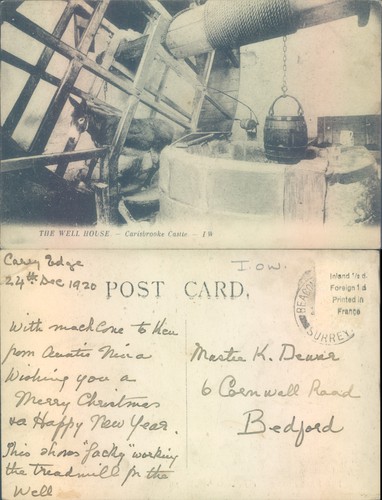 THE WELL HOUSE. — Carisbrooke Castle. — I W
Carey Edge
24th Dec 1920
I.O.W.
POST CARD.
Inland ½ d.
Foreign 1 d
Printed in
France
SURREY
With much love to Ken
from Auntie
Wishing you a
Merry Christmas
& a Happy New Year.
This shows "Jacky" working
the treadmill for the
Well
Master K.
6 Cornwall Road
Bedford